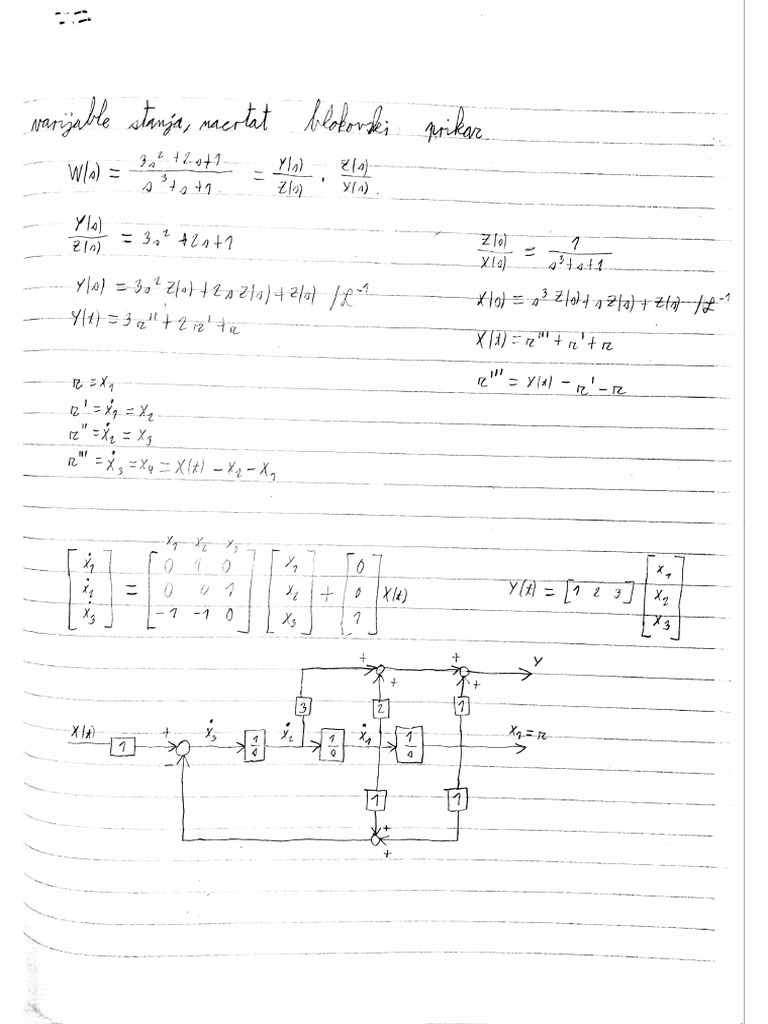 varijable stanja, nacrtat blokovski prikaz
W(s) = 3s² + 2s + 1 / s³ + s + 1 = Y(s)/Z(s) · Z(s)/Y(s).
Y(s)/Z(s) = 3s² + 2s + 1
Z(s)/X(s) = 1 / s³ + s + 1
Y(s) = 3s² Z(s) + 2s Z(s) + Z(s) /ℒ⁻¹
X(s) = s³ Z(s) + s Z(s) + Z(s) /ℒ⁻¹
Y(t) = 3z'' + 2z' + z
X(t) = z''' + z' + z
z''' = Y(t) - z' - z
z = x₁
z' = ẋ₁ = x₂
z'' = ẋ₂ = x₃
z''' = ẋ₃ = x₄ = X(t) - x₂ - x₁
x₁ x₂ x₃
[ẋ₁ ẋ₂ ẋ₃] = [0 1 0 0 0 1 -1 -1 0] [x₁ x₂ x₃] + [0 0 1] X(t)
Y(t) = [1 2 3] [x₁ x₂ x₃]
+ + + + Y
3 2 1
X(t) 1 + - ẋ₃ 1/s ẋ₂ 1/s ẋ₁ 1/s x₁ = z
1 1
+ +